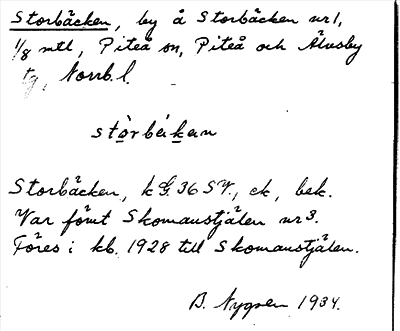 Storbäcken, by å Storbäcken nr 1,
1/8 mtl, Piteå sn, Piteå och Älvsby
tg, Norrb. l.
stòrbäkan
Storbäcken, k G. 36 SV., ek, bek.
Var förut Skomanstjälen nr 3.
Föres i kb. 1928 till Skomanstjälen.
B. Nygren 1934.